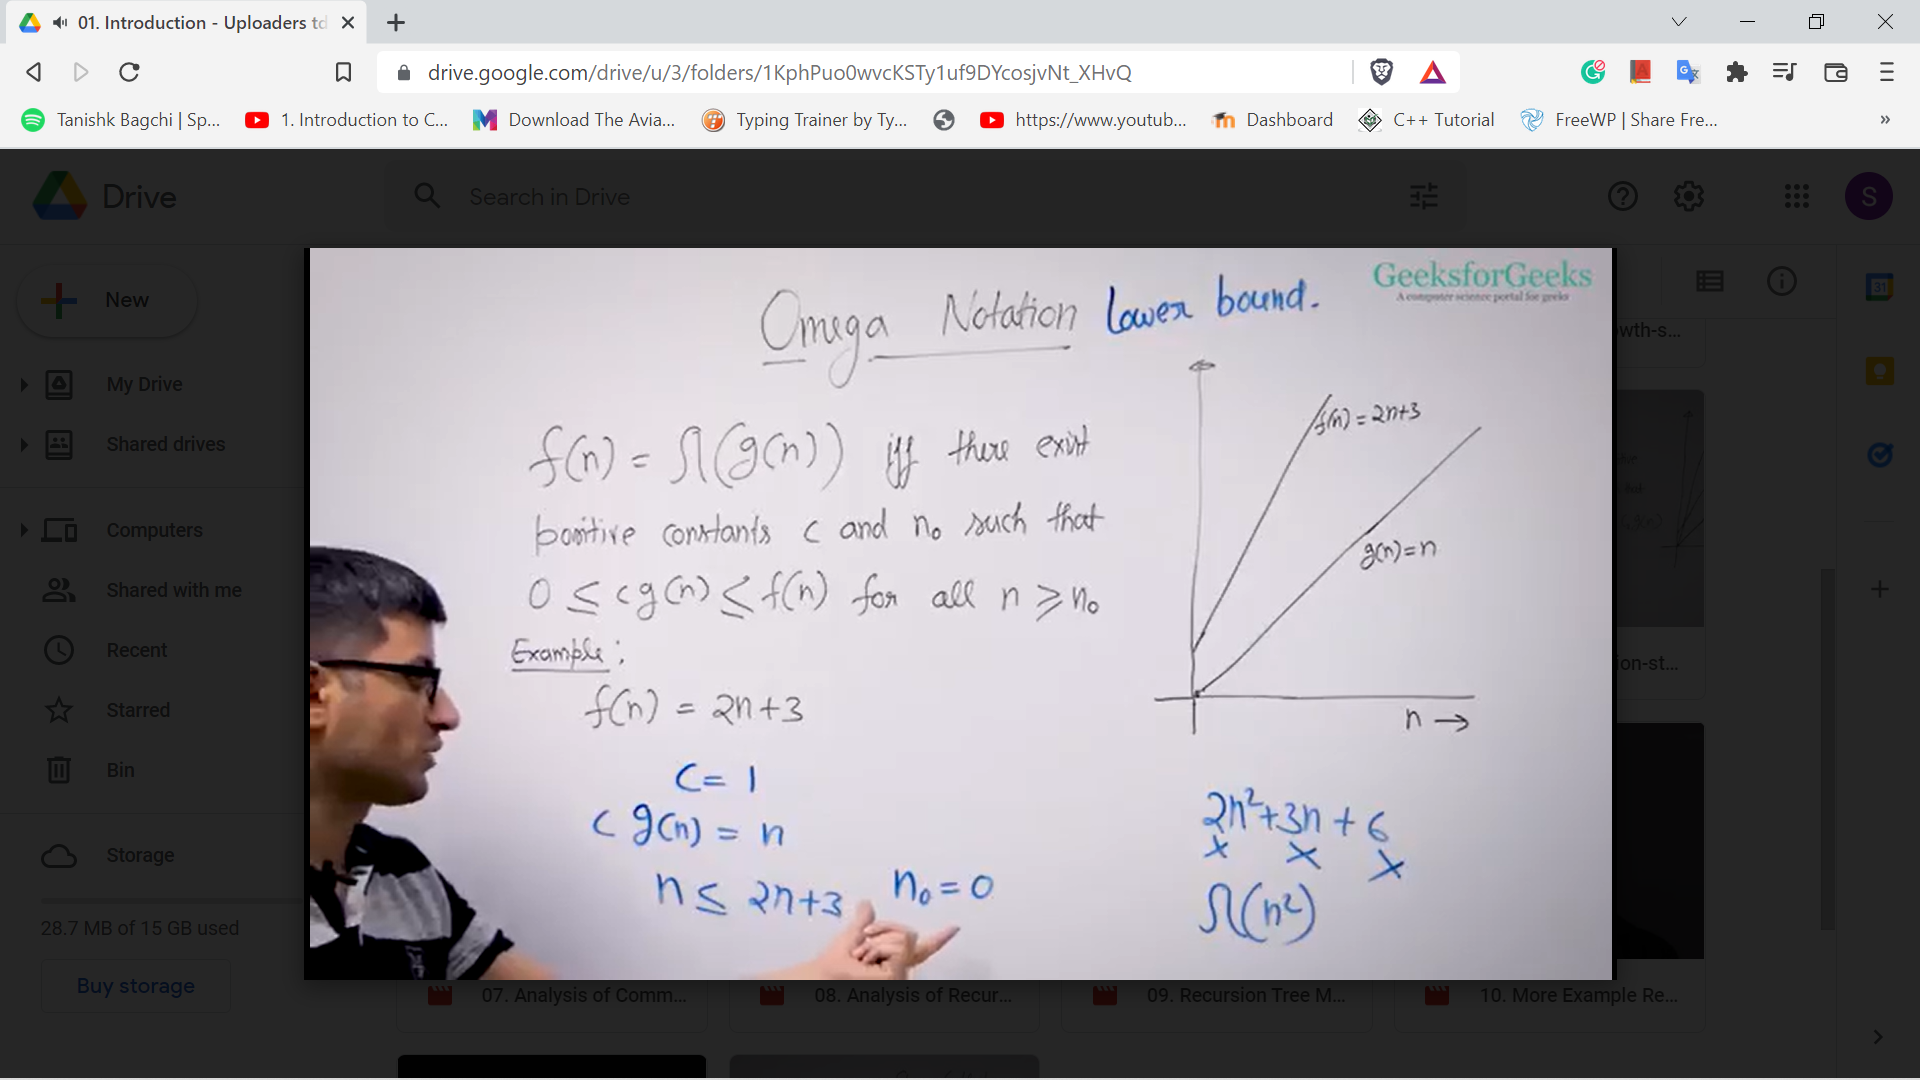 01. Introduction - Uploaders td
drive.google.com/drive/u/3/folders/1KphPuo0wvcKSTy1uf9DYcosjvNt_XHvQ
Tanishk Bagchi | Sp...
1. Introduction to C...
Download The Avia...
Typing Trainer by Ty...
https://www.youtub...
Dashboard
C++ Tutorial
FreeWP | Share Fre...
»
Drive
Search in Drive
S
New
My Drive
Shared drives
Computers
Shared with me
Recent
Starred
Bin
Storage
28.7 MB of 15 GB used
Buy storage
GeeksforGeeks
A computer science portal for geeks
Omega Notation lower bound.
f(n) = Ω(g(n)) iff there exist
positive constants c and n₀ such that
0 ≤ cg(n) ≤ f(n) for all n ≥ n₀
Example:
f(n) = 2n+3
C = 1
C g(n) = n
n ≤ 2n+3 n₀ = 0
f(n) = 2n+3
g(n) = n
n →
2n²+3n+6
x x x
Ω(n²)
wth-s...
ion-st...
31
07. Analysis of Comm...
08. Analysis of Recur...
09. Recursion Tree M...
10. More Example Re...